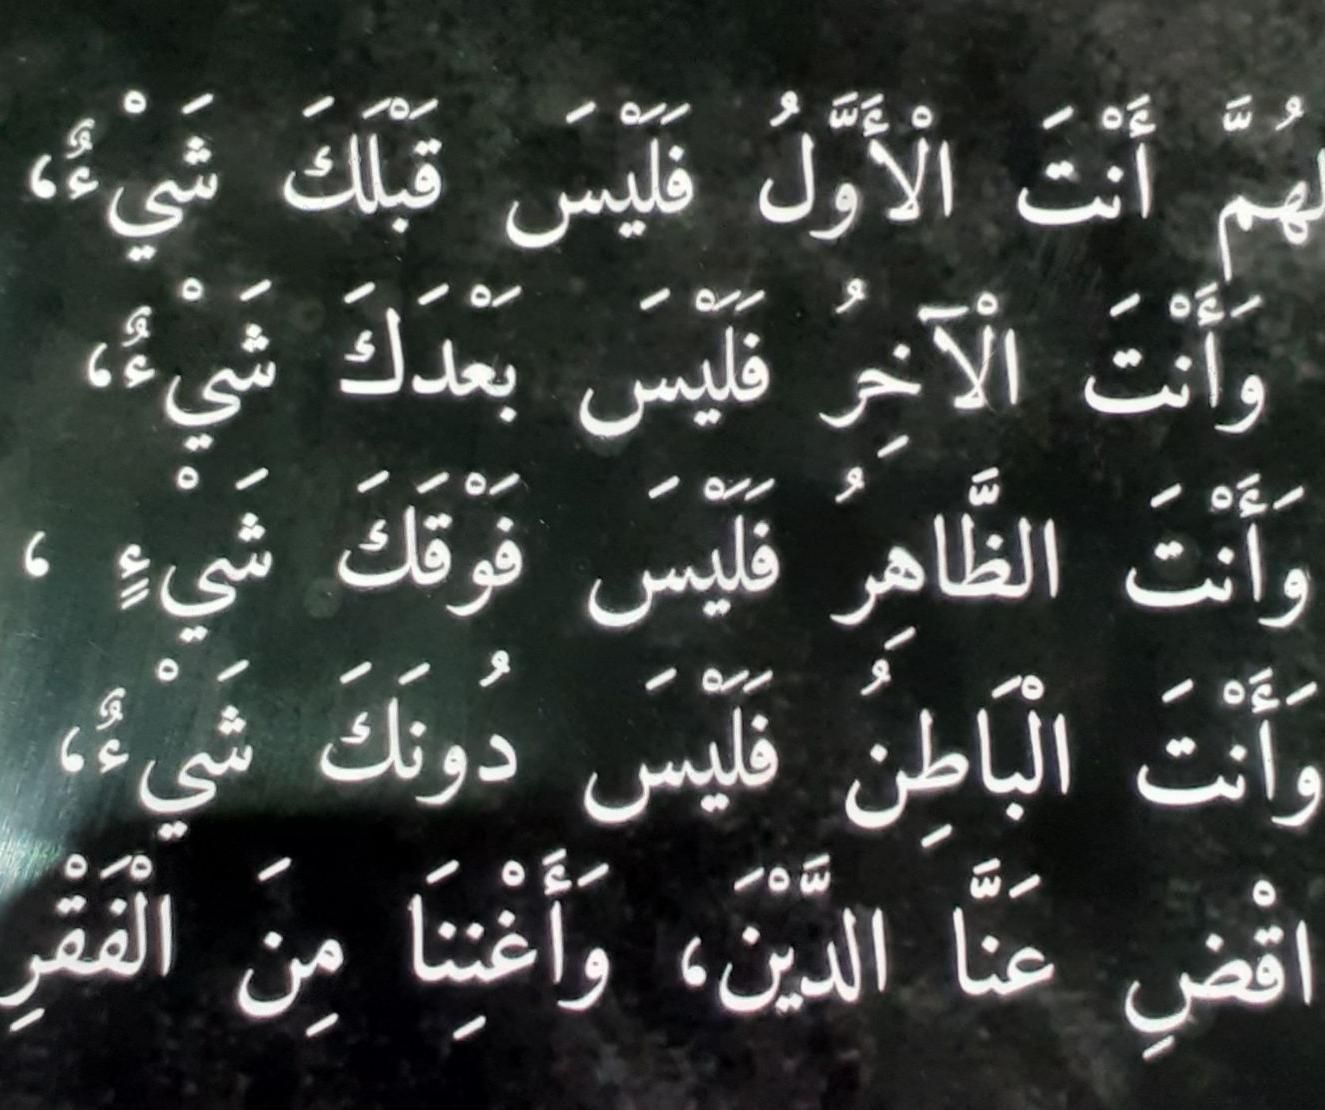 لهُمَّ أَنْتَ الْأَوَّلُ فَلَيْسَ قَبْلَكَ شَيْءٌ،
وَأَنْتَ الْآخِرُ فَلَيْسَ بَعْدَكَ شَيْءٌ،
وَأَنْتَ الظَّاهِرُ فَلَيْسَ فَوْقَكَ شَيْءٍ ،
وَأَنْتَ الْبَاطِنُ فَلَيْسَ دُونَكَ شَيْءٌ،
اقْضِ عَنَّا الدَّيْنَ، وَأَغْنِنَا مِنَ الْفَقْرِ